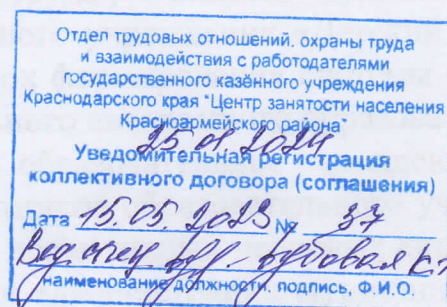 Отдел трудовых отношений, охраны труда
и взаимодействия с работодателями
государственного казённого учреждения
Краснодарского края "Центр занятости населения
Красноармейского района"
Уведомительная регистрация
коллективного договора (соглашения)
Дата 15.05.2023 № 37
Вед.
наименование должности, подпись, Ф.И.О.